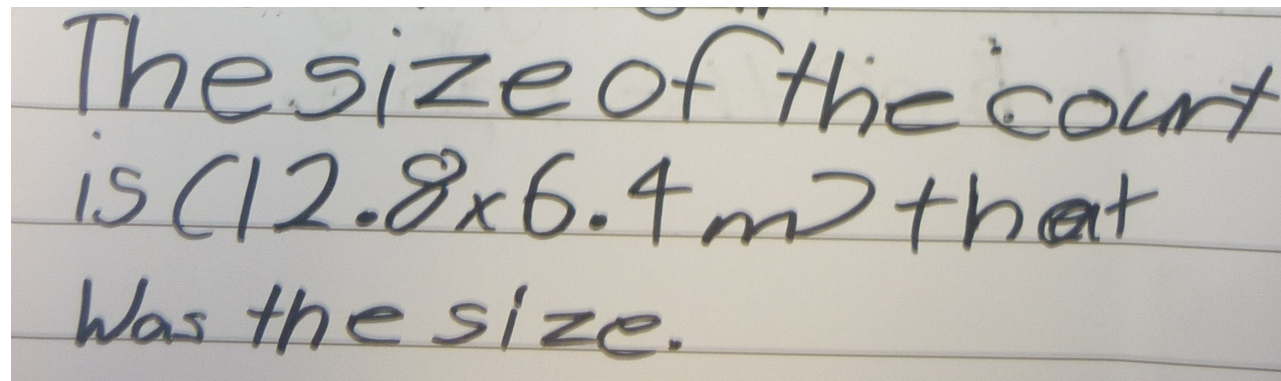 The size of the court
is (12.8x6.4m) that
Was the size.